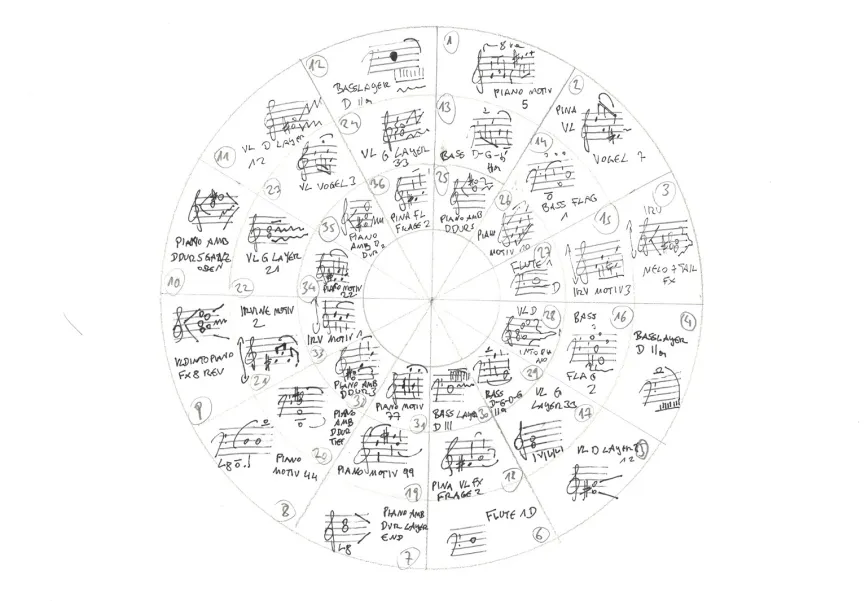 1
8va
PIANO MOTIV
5
2
PINA
VL
VOGEL 7
3
IRV
FX
4
BASSLAYER
D
VL D LAYER
12
6
FLUTE 1D
7
PIANO AMB
DVR LAYER
END
L8
8
PIANO
MOTIV 44
L8
9
VLDINTOPIANO
FX8 REV
10
PIANO AMB
DDUR5GANZ
OBEN
11
VL D LAYER
12
12
BASSLAYER
D
13
BASS D-G-b
14
BASS FLAG
1
15
IRV MOTIV3
16
BASS
FLAG
2
17
VL G
LAYER 33
18
PINA VL FX
FRAGE 2
19
PIANO MOTIV 99
20
PIANO
AMB
DDUR
TIEF
21
IRVINE MOTIV
2
22
VL G LAYER
21
23
VL VOGEL 3
24
VL G LAYER
33
25
PIANO AMB
DDUR3
26
MOTIV
27
FLUTE 1
D
28
VL D
INTO PIA
NO
29
BASS
D-G-D-G
30
BASS LAYER
D III
31
PIANO MOTIV
77
32
PIANO AMB
DDUR3
33
IRV MOTIV 1
34
PIANO MOTIV
22
35
PIANO
AMB D2
DUR
36
PINA FL
FRAGE 2